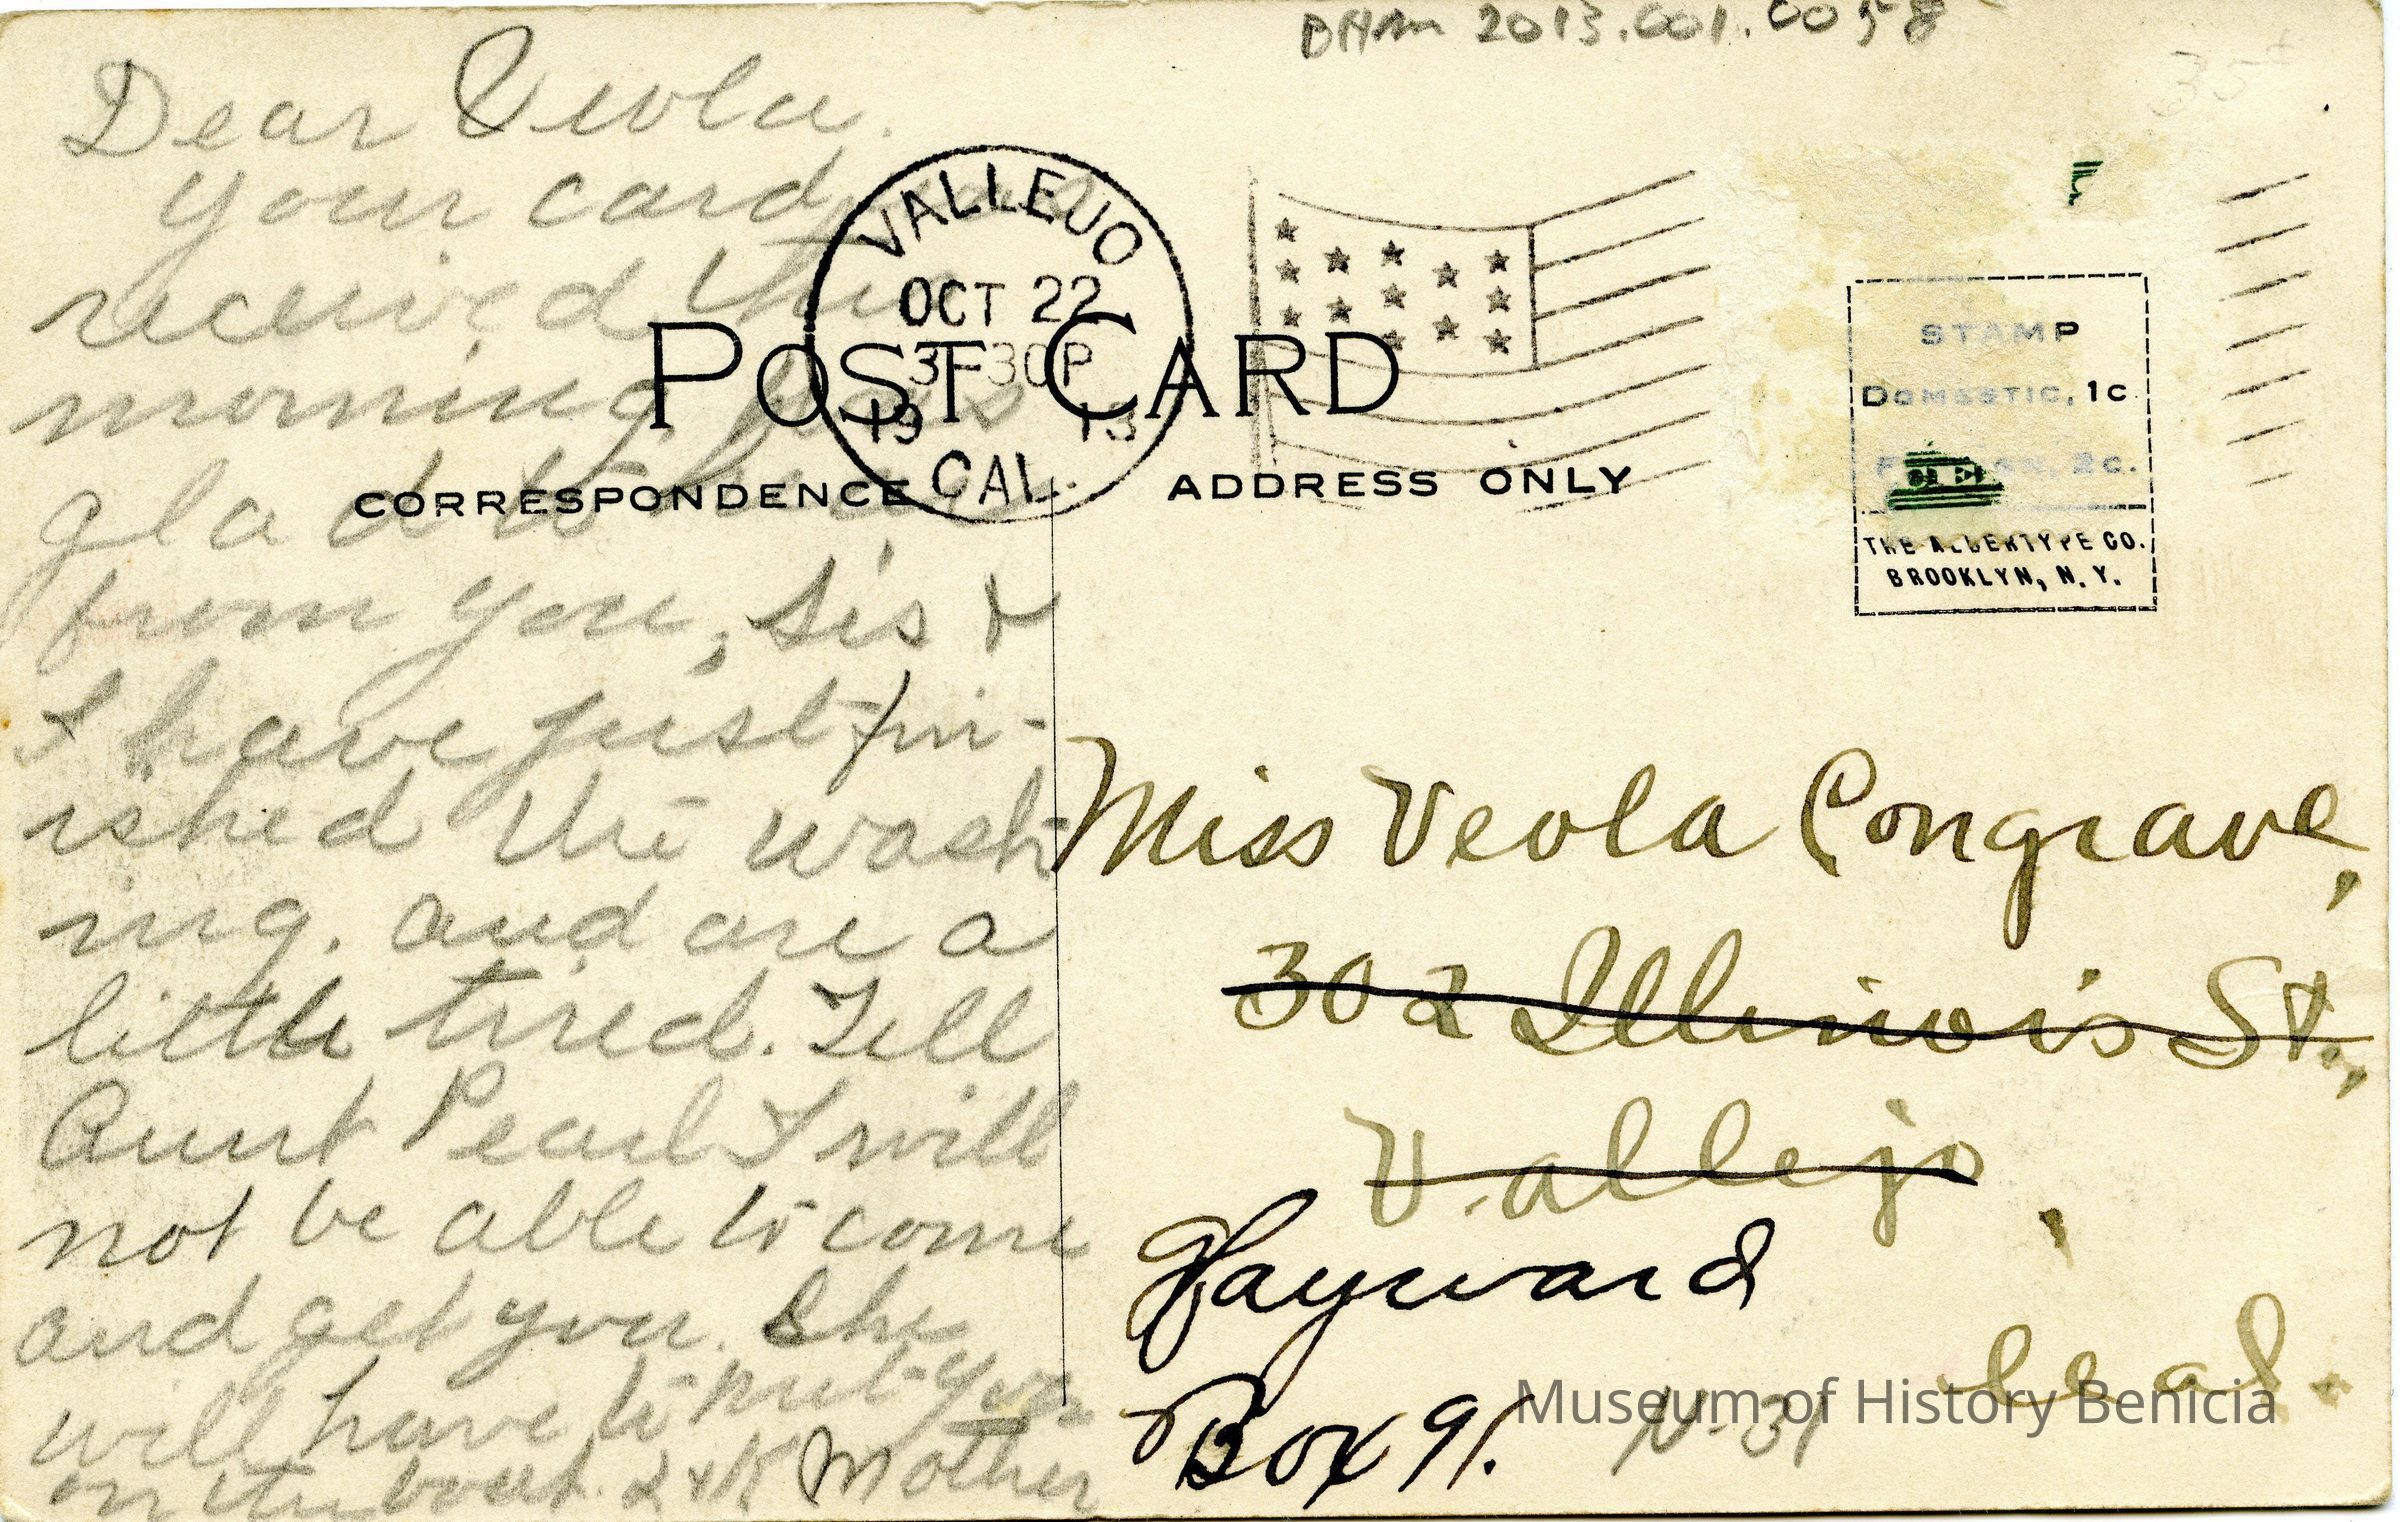 BHM 2013.001.0058
35¢
Dear Veola.
Your card was
received this
morning was
glad to hear
from you, Sis &
I have just fin-
ished the wash-
ing. and are a
little tired. Tell
Aunt Pearl I will
not be able to come
and get you. She
will have to put you
on the boat. L & K Mother
VALLEJO
OCT 22
3-30P
1913
CAL.
POST CARD
CORRESPONDENCE
ADDRESS ONLY
STAMP
DOMESTIC, 1c
FOREIGN, 2c.
THE ALBERTYPE CO.
BROOKLYN, N. Y.
Miss Veola Congrave,
302 Illinois St.,
Vallejo,
Hayward
Cal.
Box 91.
N-31
Museum of History Benicia